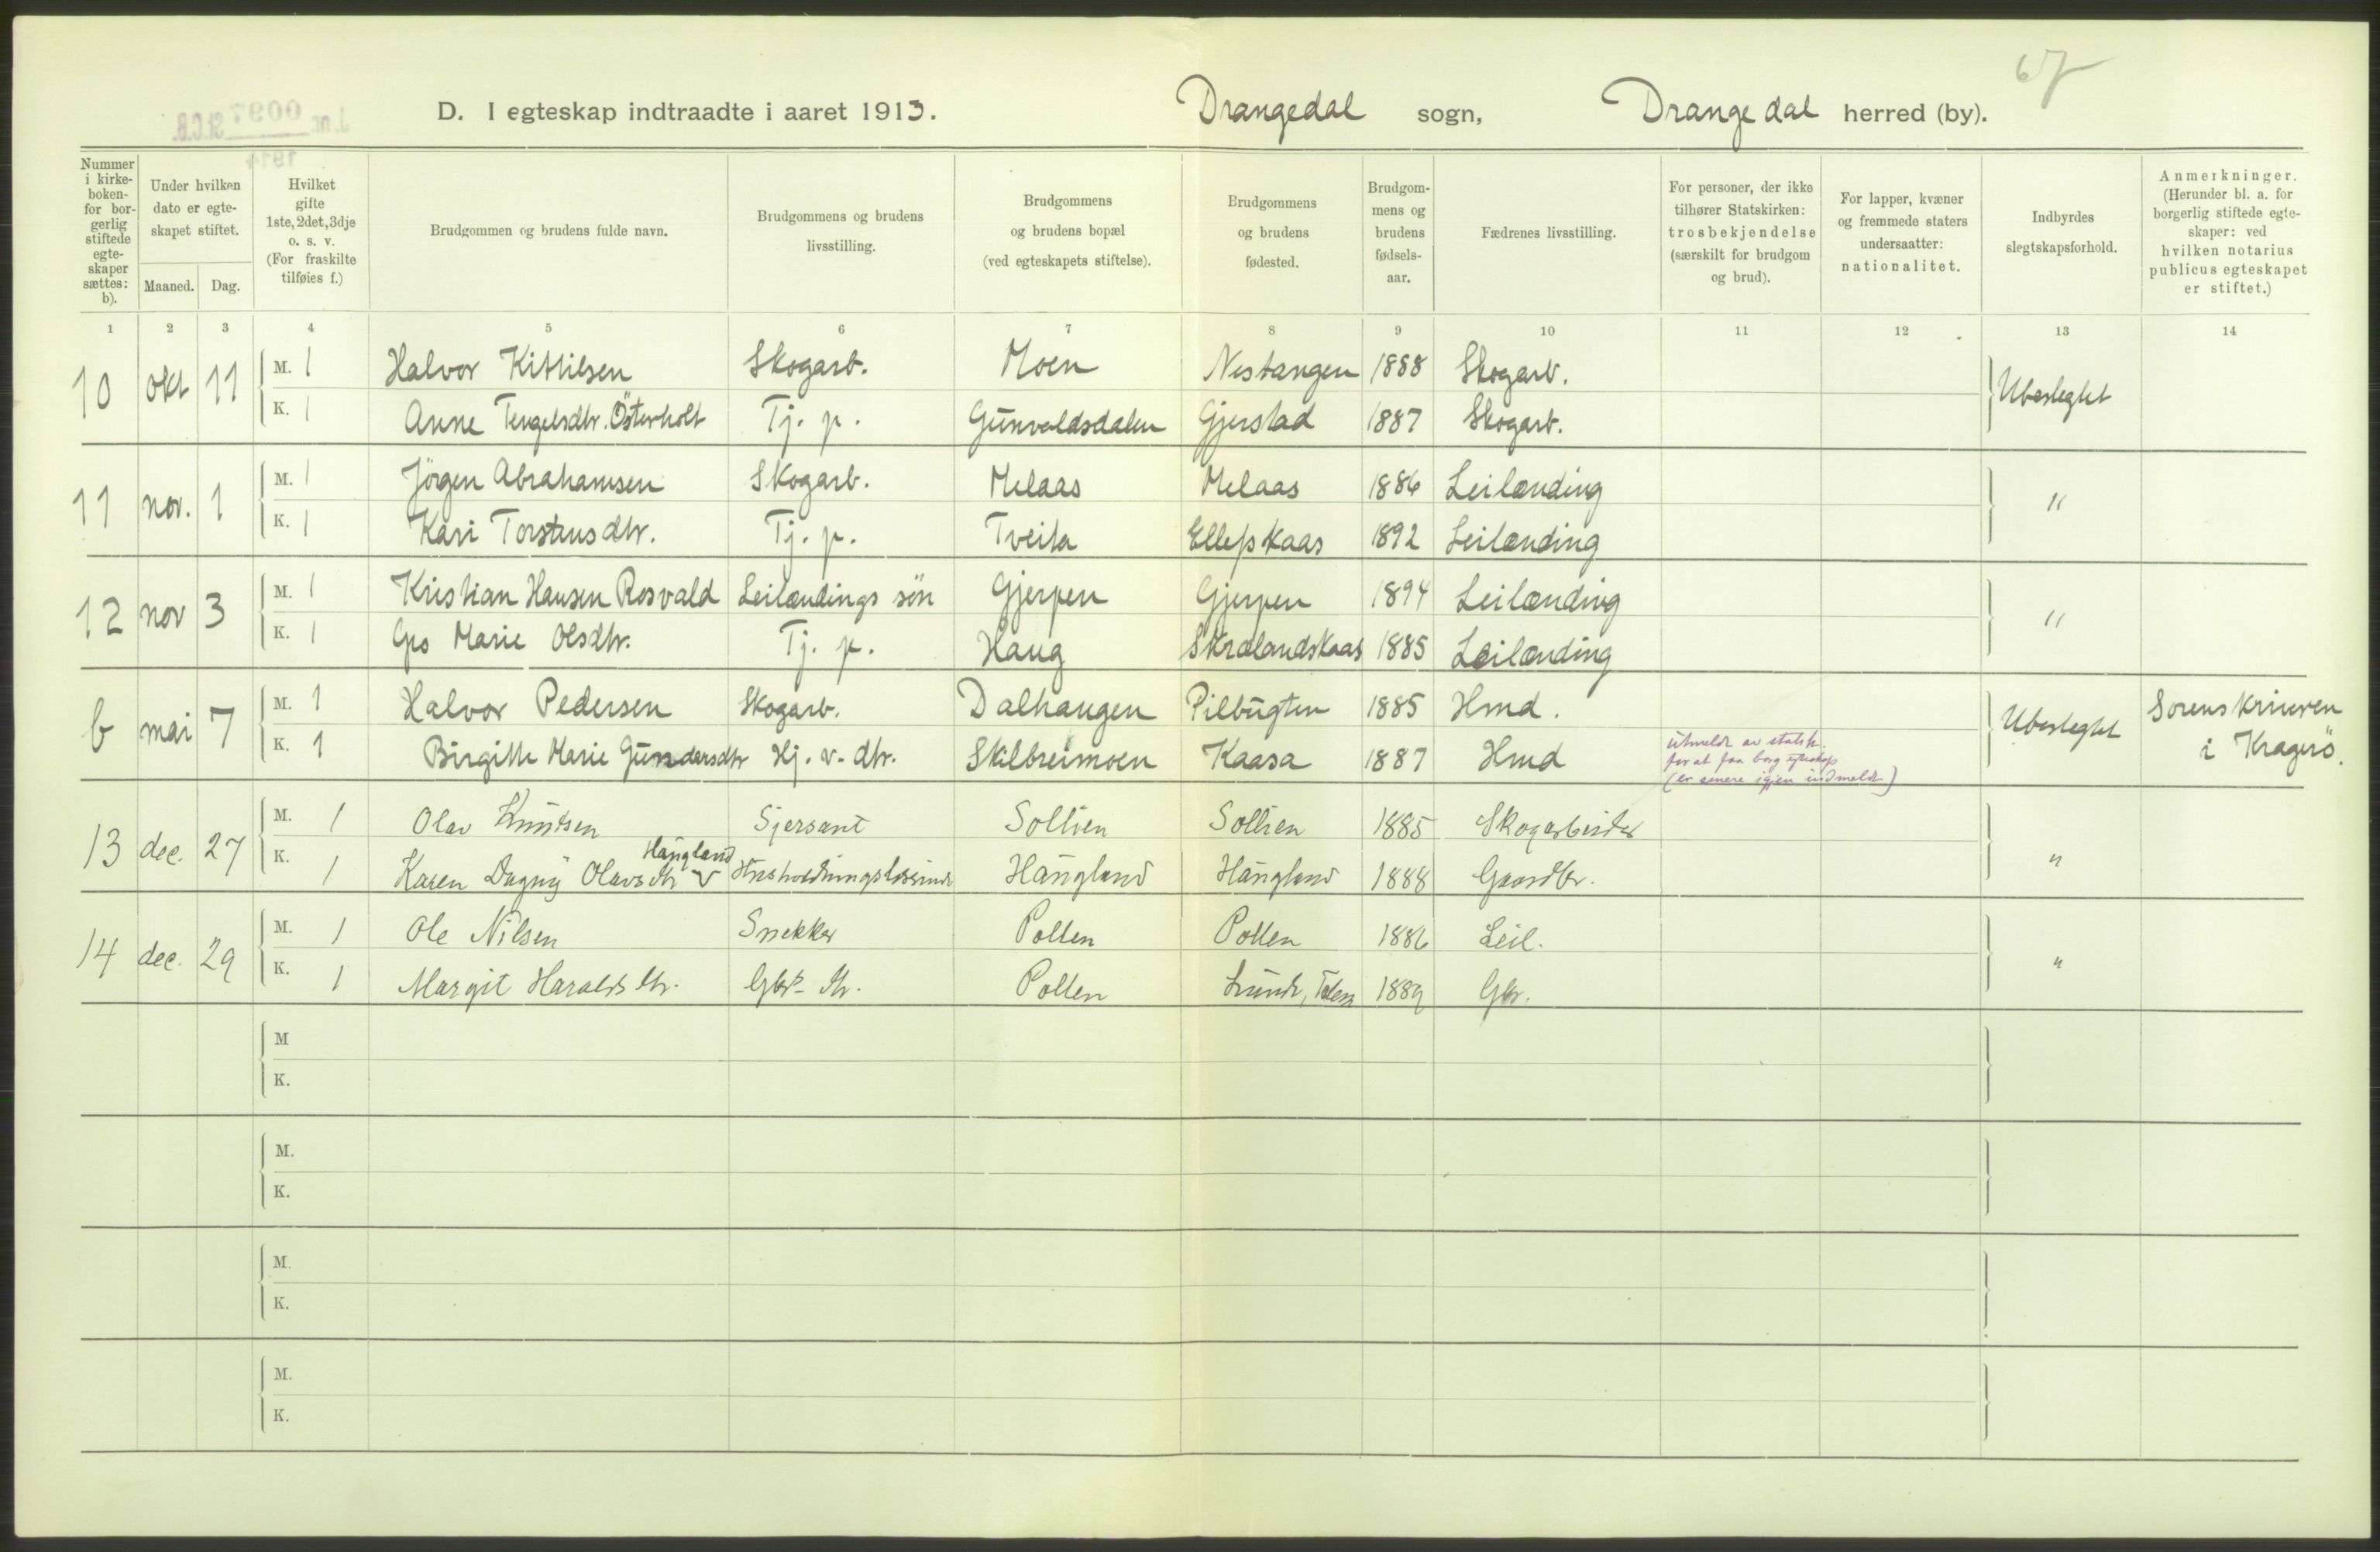 67
D. I egteskap indtraadte i aaret 1913. Drangedal sogn, Drangedal herred (by).
J.nr. 0097 St.C.B.
1914
Nummer i kirke-boken- for bor-gerlig stiftede egte-skaper sættes: b).
Under hvilken dato er egte-skapet stiftet.
Maaned. Dag.
Hvilket gifte 1ste, 2det, 3dje o. s. v. (For fraskilte tilføies f.)
Brudgommen og brudens fulde navn.
Brudgommens og brudens livsstilling.
Brudgommens og brudens bopæl (ved egteskapets stiftelse).
Brudgommens og brudens fødested.
Brudgom-mens og brudens fødsels-aar.
Fædrenes livsstilling.
For personer, der ikke tilhører Statskirken: trosbekjendelse (særskilt for brudgom og brud).
For lapper, kvæner og fremmede staters undersaatter: nationalitet.
Indbyrdes slegtskapsforhold.
Anmerkninger. (Herunder bl. a. for borgerlig stiftede egte-skaper: ved hvilken notarius publicus egteskapet er stiftet.)
1 2 3 4 5 6 7 8 9 10 11 12 13 14
10 okt 11 M. 1 Halvor Kittilsen Skogarb. Moen Nestangen 1888 Skogarb. Ubeslegtet
K. 1 Anne Tengelsdtr. Österholt Tj. p. Gunvaldsdalen Gjerstad 1887 Skogarb.
11 nov. 1 M. 1 Jörgen Abrahamsen Skogarb. Melaas Melaas 1886 Leilænding "
K. 1 Kari Torstensdtr. Tj. p. Tveita Ellefskaas 1892 Leilænding
12 nov 3 M. 1 Kristian Hansen Rosvald Leilændings sön Gjerpen Gjerpen 1894 Leilænding "
K. 1 Gro Marie Olsdtr. Tj. p. Haug Skrælandskaas 1885 Leilænding
b mai 7 M. 1 Halvor Pedersen Skogarb. Dalhaugen Pilbugten 1885 Hmd. Ubeslegtet Sorenskriveren
K. 1 Birgitte Marie Gundersdtr Hj. v. dtr. Skilbreimoen Kaasa 1887 Hmd utmeldt av statsk. for at faa borg egteskap (er senere igjen indmeldt) i Kragerö.
13 dec. 27 M. 1 Olav Knutsen Sjersant Sollien Sollien 1885 Skogarbeider "
Haugland
K. 1 Karen Dagny Olavsdtr v Husholdningslærerinde Haugland Haugland 1888 Gaardbr.
14 dec. 29 M. 1 Ole Nilsen Snekker Pollen Pollen 1886 Leil. "
K. 1 Margit Haraldsdtr. Gbr. dtr. Pollen Lunde, Telem 1889 Gbr.
M
K.
M.
K.
M.
K.
M.
K.